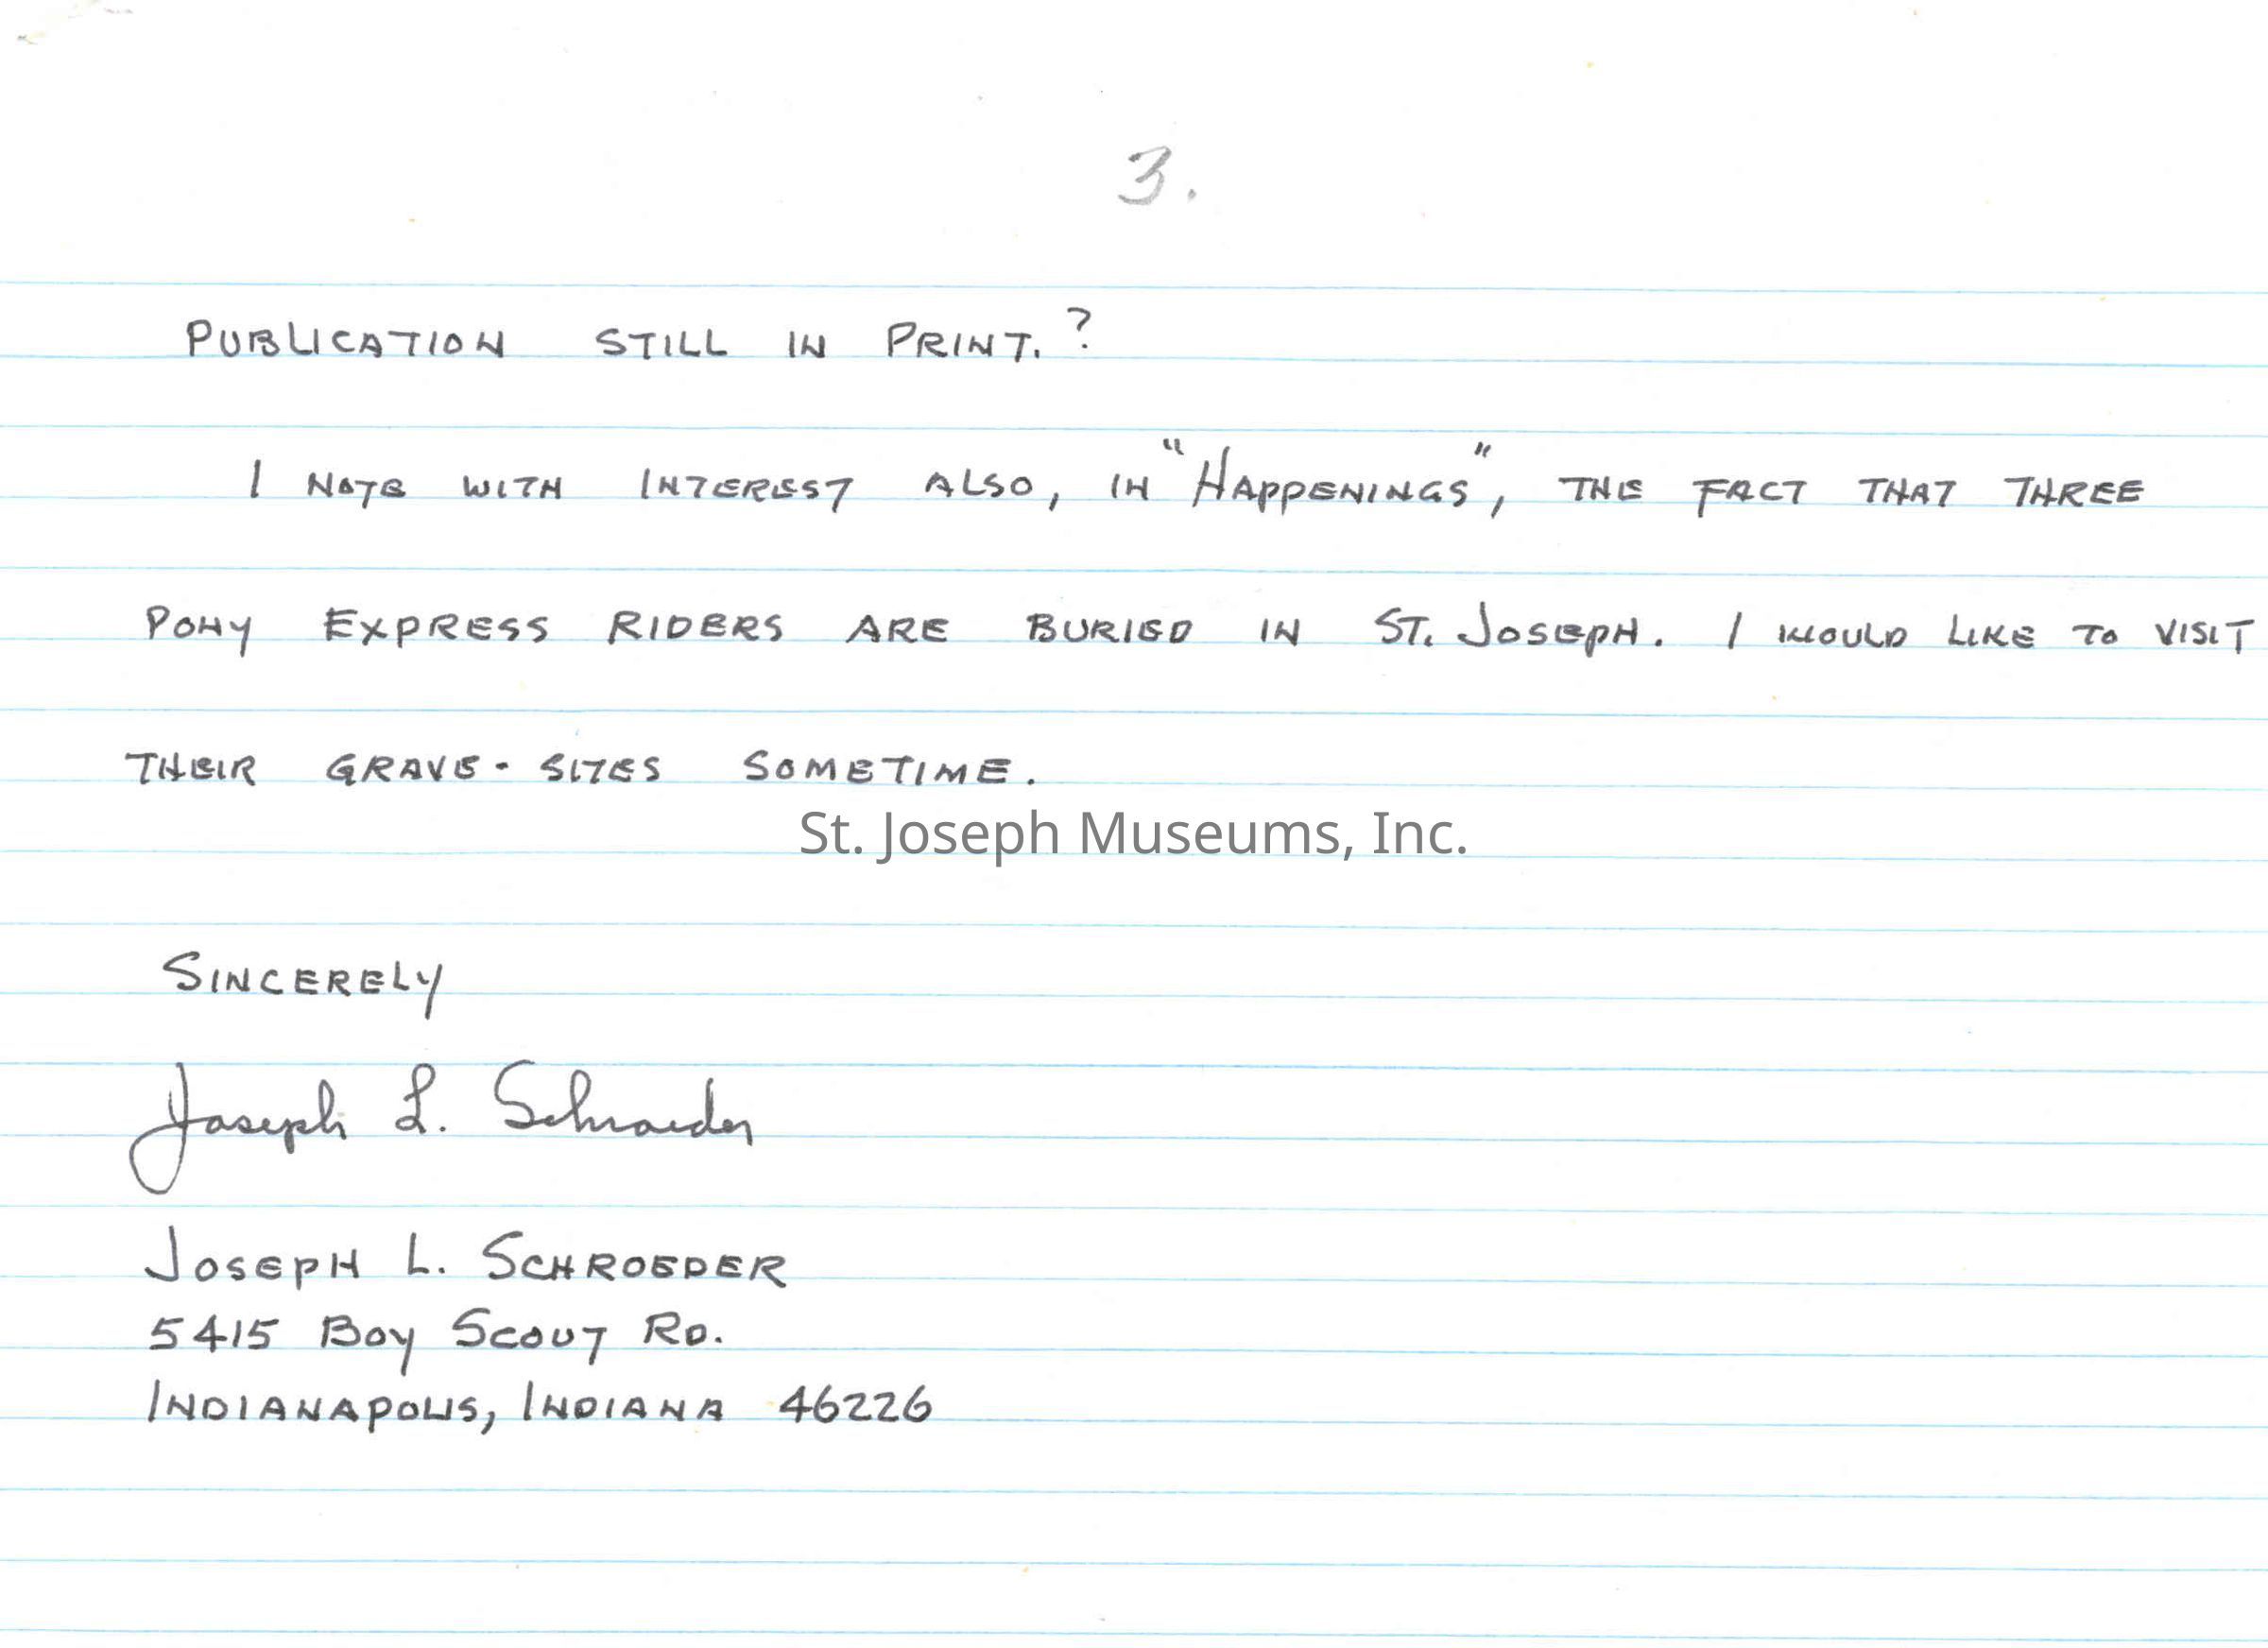 3.
PUBLICATION STILL IN PRINT.?
I NOTE WITH INTEREST ALSO, IN "HAPPENINGS", THE FACT THAT THREE
PONY EXPRESS RIDERS ARE BURIED IN ST. JOSEPH. I WOULD LIKE TO VISIT
THEIR GRAVE-SITES SOMETIME.
St. Joseph Museums, Inc.
SINCERELY
Joseph L. Schroeder
JOSEPH L. SCHROEDER
5415 BOY SCOUT RD.
INDIANAPOLIS, INDIANA 46226